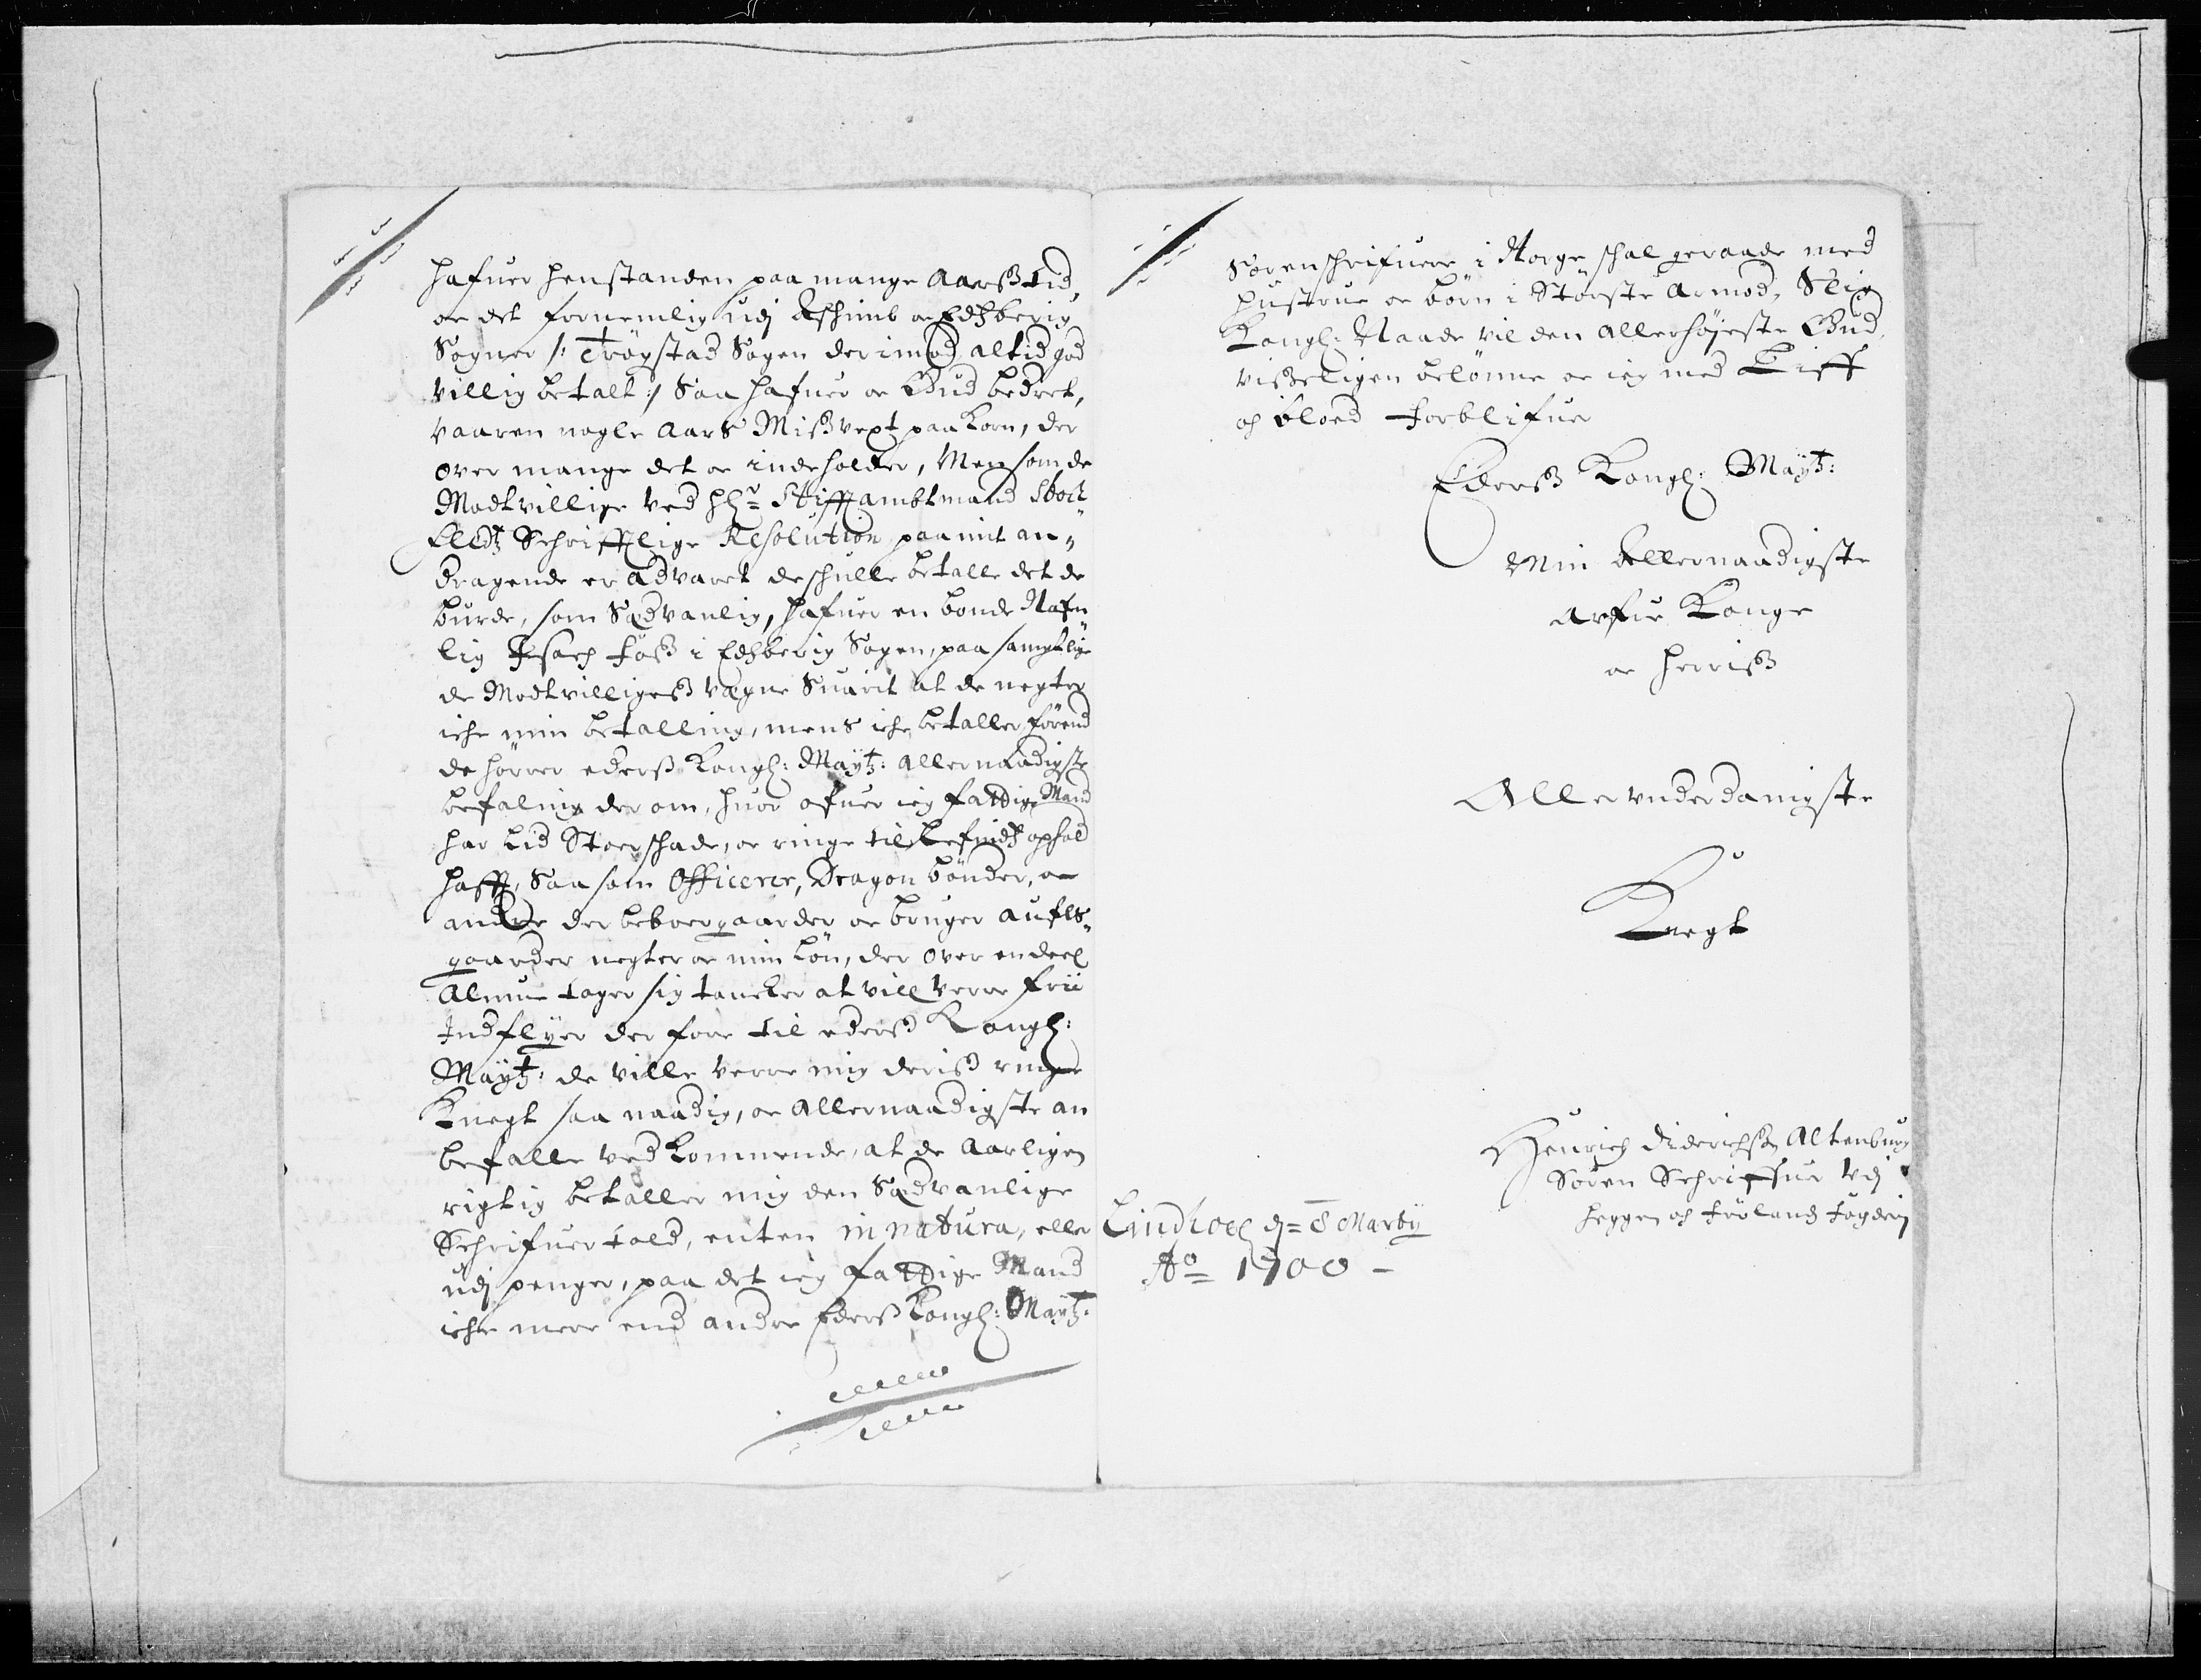 hafuer henstanden paa mange Aarß tid,
oc det fornemlig udj Aschimb oc Edsberig
Sogner /: Trögstad Sogen derimod altid god
villig betalt :/ Saa hafuer oc Gud bedret,
vaaren nogle Aars Mißvext paa Korn, der
over mange det oc indeholder, Men som de
Modtvillige ved hr: Stifftambtmand Stock
Fledtz Schrifftlige Resolution paa mit an„
dragende er advaret de schulle betalle det de
burde, som Sædvanlig, hafuer en bonde Nafn„
lig Isach Foß i Edsberig Sogen, paa samptlige
de Modtvilligeß vægne Suarit at de negter
iche min betalling, mens iche betaller förend
de hörrer ederß Kongl: Maytz: allernaadigste
befaling der om, huor ofuer ieg fattige Mand
har Lid Stoer schade, oc ringe til Lefnidtz ophold
hafft, Saa som Officerer, Dragon bönder, oc
andre der beboer gaarder oc bruger aufls„
gaarder negter oc min Lön, der over endeel
Almue tager sig tancker at vill verre frii
Indflyer der fore til ederß Kongl:
Maytz: de ville verre mig deriß ringe
Knegt saa naadig, oc Allernaadigste an
befalle vedkommende, at de Aarligen
rigtig betaller mig den Sædvanlige
Schrifuer told, enten in natura, eller
udj penger, paa det ieg fattige Mand
iche mere end andre Ederß Kongl: Maytz:
Sorenschrifuere i Norge schal geraade med
hustrue oc börn i Störste Armod, Slig
Kongl: Naade vil den Allerhöjeste Gud
visseligen belönne oc ieg med Liff
og bloed forblifuer
Ederß Kongl: Maytz:
Min Allernaadigste
Arfue Konge
oc Herriß
Allerunderdanigste
Knegt
Henrich Diderichsen Altenburg
Soren Schriffuer udj
Heggen og Fröland Fogderi
Lindhoel d= 8 Marty
Ao= 1700 –